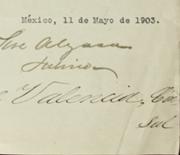 México, 11 de Mayo de 1903.
José Algara
Junior
Valencia, Ca
Sul